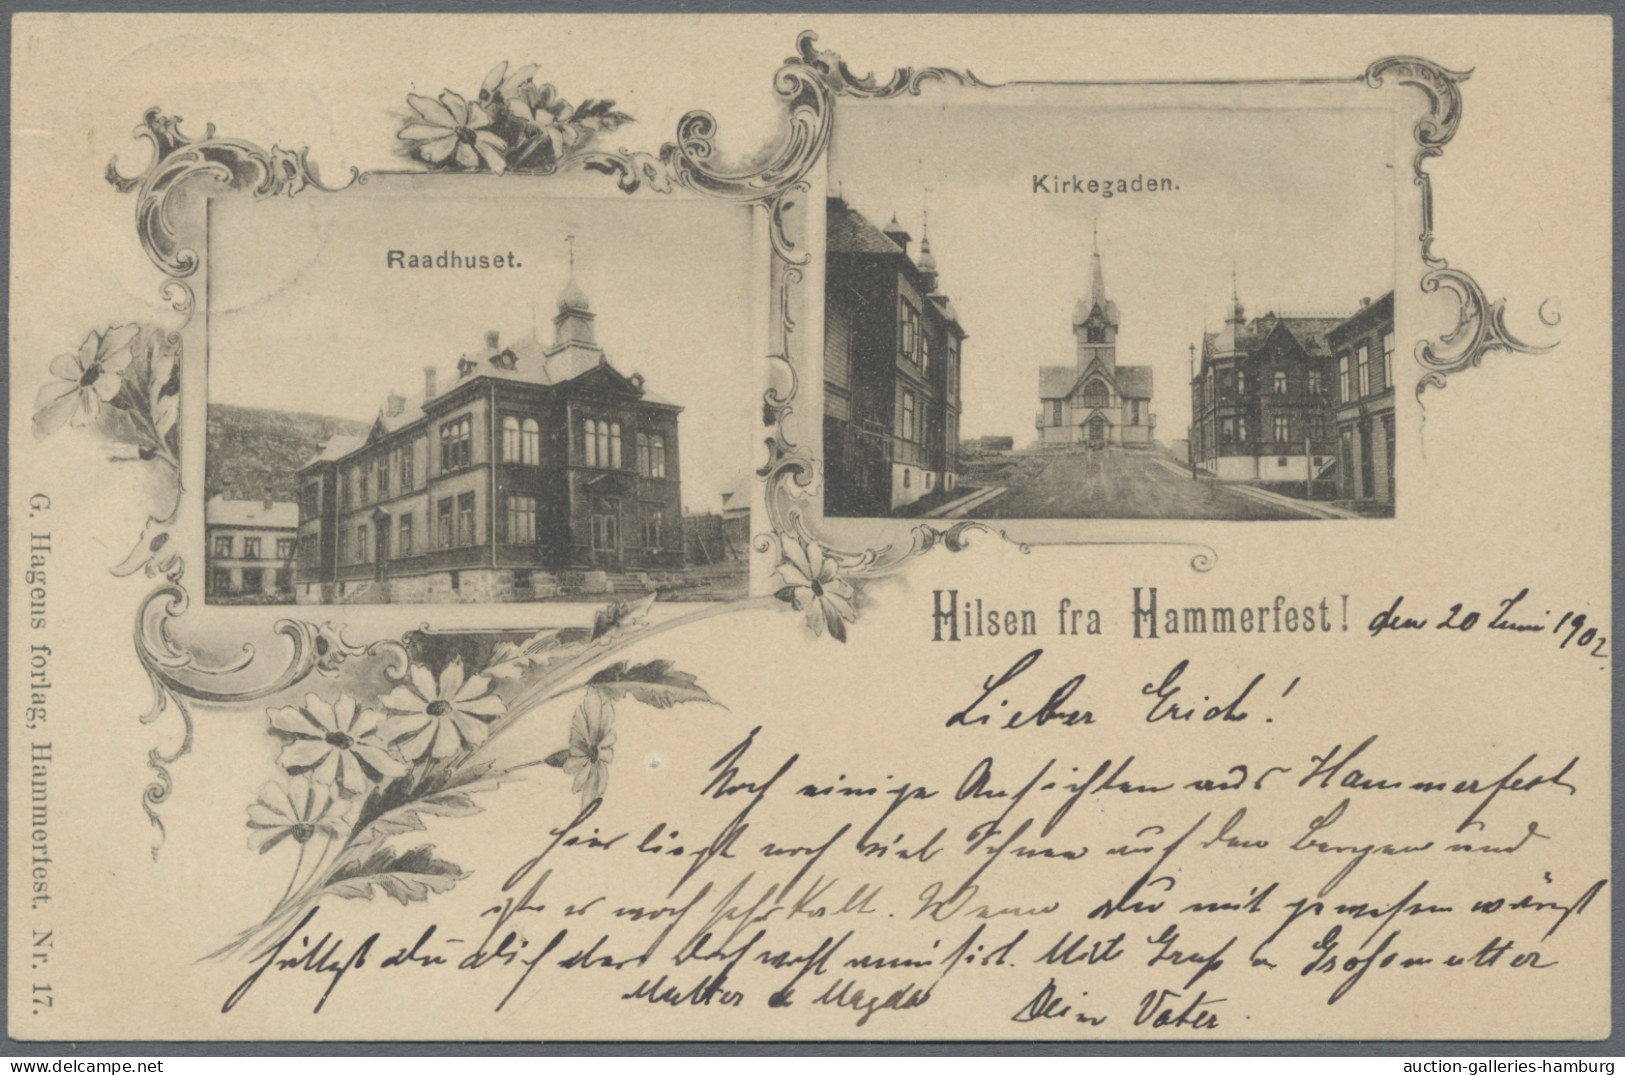 Kirkegaden.
Raadhuset.
Hilsen fra Hammerfest! den 20 Juni 1902.
Lieber Erich!
Noch einige Ansichten aus Hammerfest
hier liegt noch viel Schnee auf den Bergen und
ist es noch sehr kalt. Wenn Du mit gewesen wärest
hättest du dich aber doch wohl amüsirt. Mit Gruß a Großmutter
Mutter u Magda Dein Vater.
G. Hagens forlag, Hammerfest. Nr. 17.
auction-galleries-hamburg